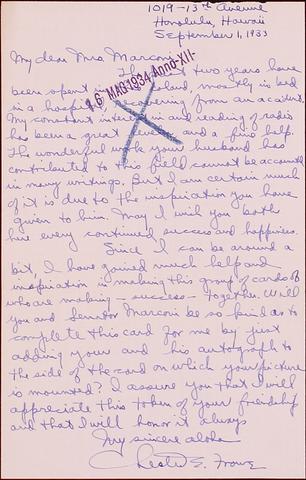 1019-13th Avenue
Honolulu, Hawaii
September 1, 1933
My dear Mrs Marconi
The last two years have
been spent island, mostly in bed
in a hospital recovering from an accident.
My constant interest in and reading of radio
has been a great and a fine help.
The wonderful work your husband has
contributed to this field cannot be accounted
in many writings. But I am certain much
of it is due to the inspiration you have
given to him. May I wish you both
here every continued success and happiness.
Since I can be around a
bit, I have gained much help and
inspiration is making this group of cards of
who are making - success - together. Will
you and Senator Marconi be so kind as to
complete this card for me by just
adding your and his autograph to
the side of the card on which your picture
is mounted? I assure you that I will
appreciate this token of your friendship
and that I will honor it always
My sincere aloha
Leslie E.
16 MAG 1934 Anno-XII-